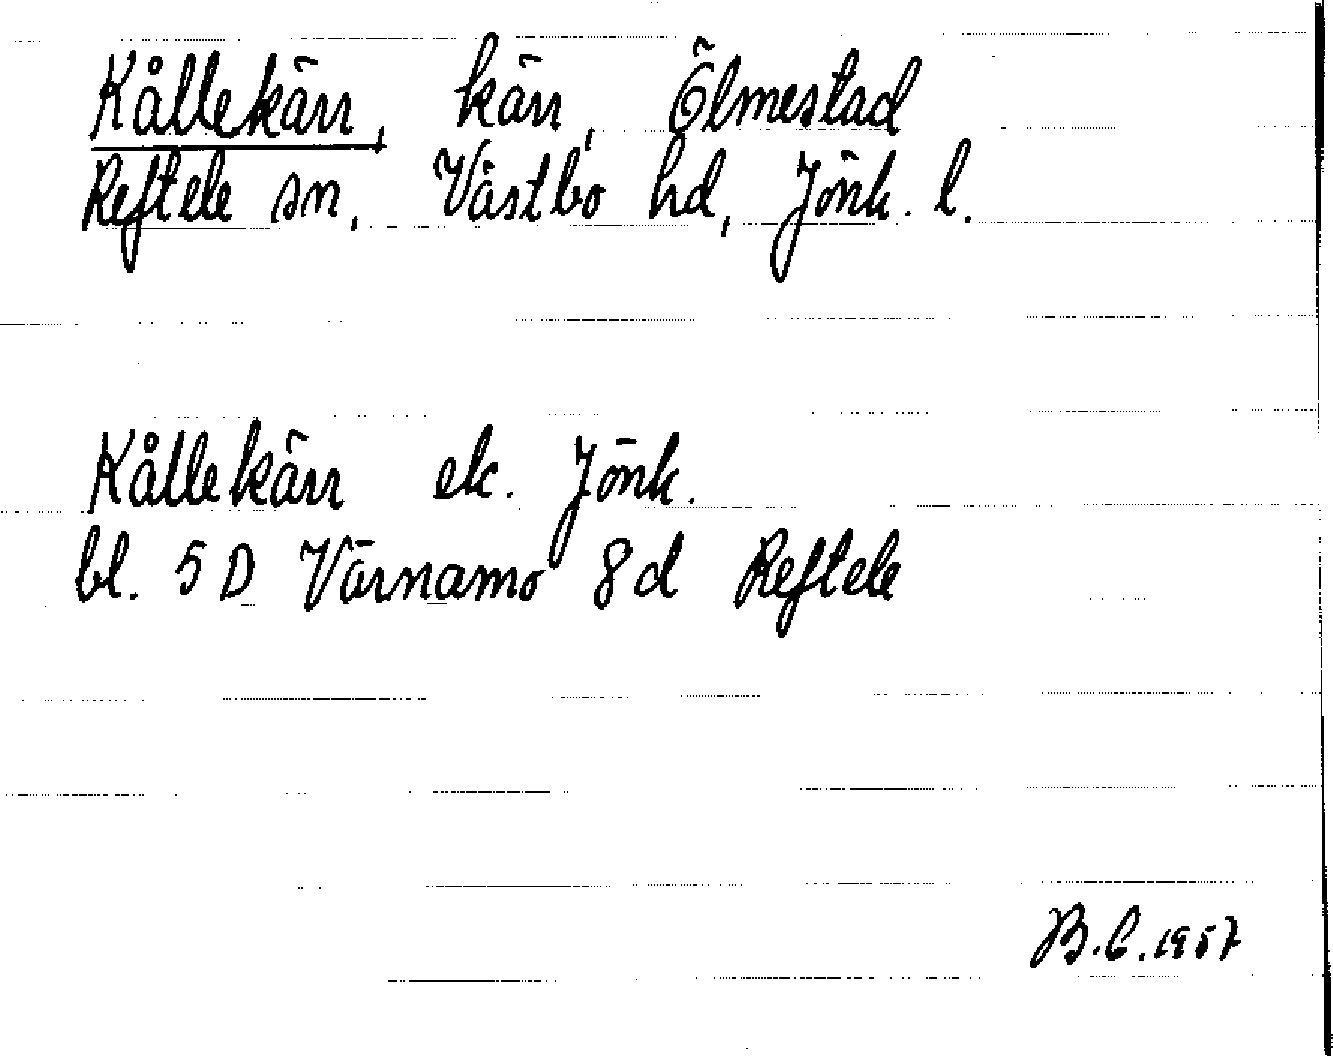 Kållekärr, kärr, Ölmestad
Reftele sn, Västbo hd, Jönk. l.
Kållekärr ek. Jönk.
bl. 5 D Värnamo 8 d Reftele
B.C. 1957